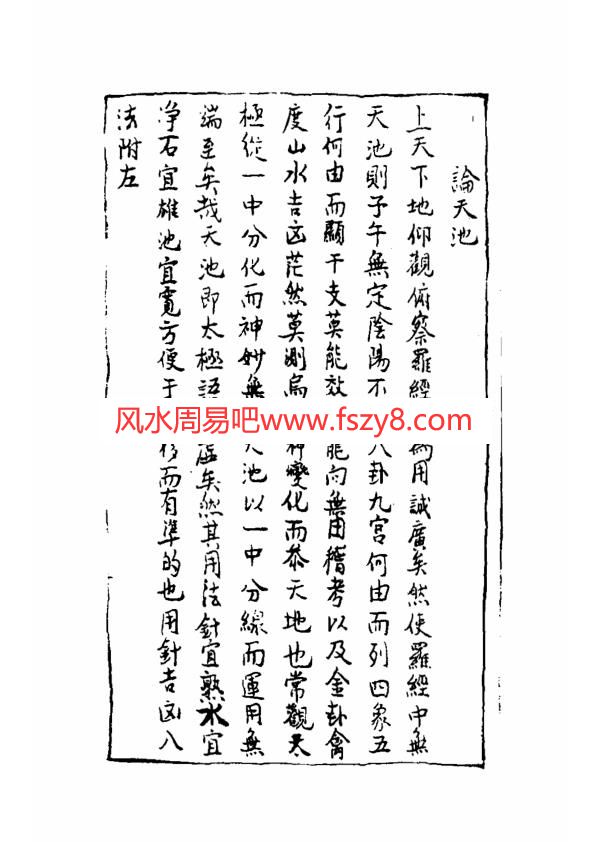 論天池
上天下地仰觀俯察羅經為用誠廣矣然使羅經中無
天池則子午無定陰陽不八卦九宮何由而列四象五
行何由而顯干支莫能效能向無由稽考以及金卦禽
度山水吉凶茫然莫測烏神變化而叅天地也常觀太
極從一中分化而神妙無天池以一中分線而運用無
端至矣哉天池即太極語虛矣然其用法針宜熟水宜
净石宜雄池宜寬方便于移而有準的也用針吉凶八
法附左
风水周易吧www.fszy8.com